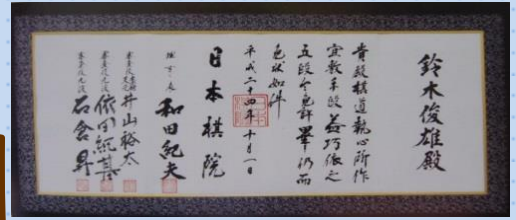 鈴木俊雄殿
貴殿棋道執心所作
宜敷手段益巧依之
五段令免許畢仍而
免状如件
平成二十四年十月一日
日本棋院
和田紀夫
井山裕太
依田紀基
石倉昇